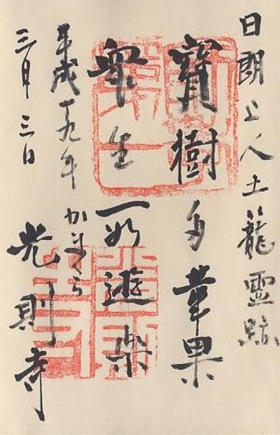 日朗上人土籠靈跡
寶樹多華果
衆生所遊樂
平成十九年
三月三日
かまくら
光則寺